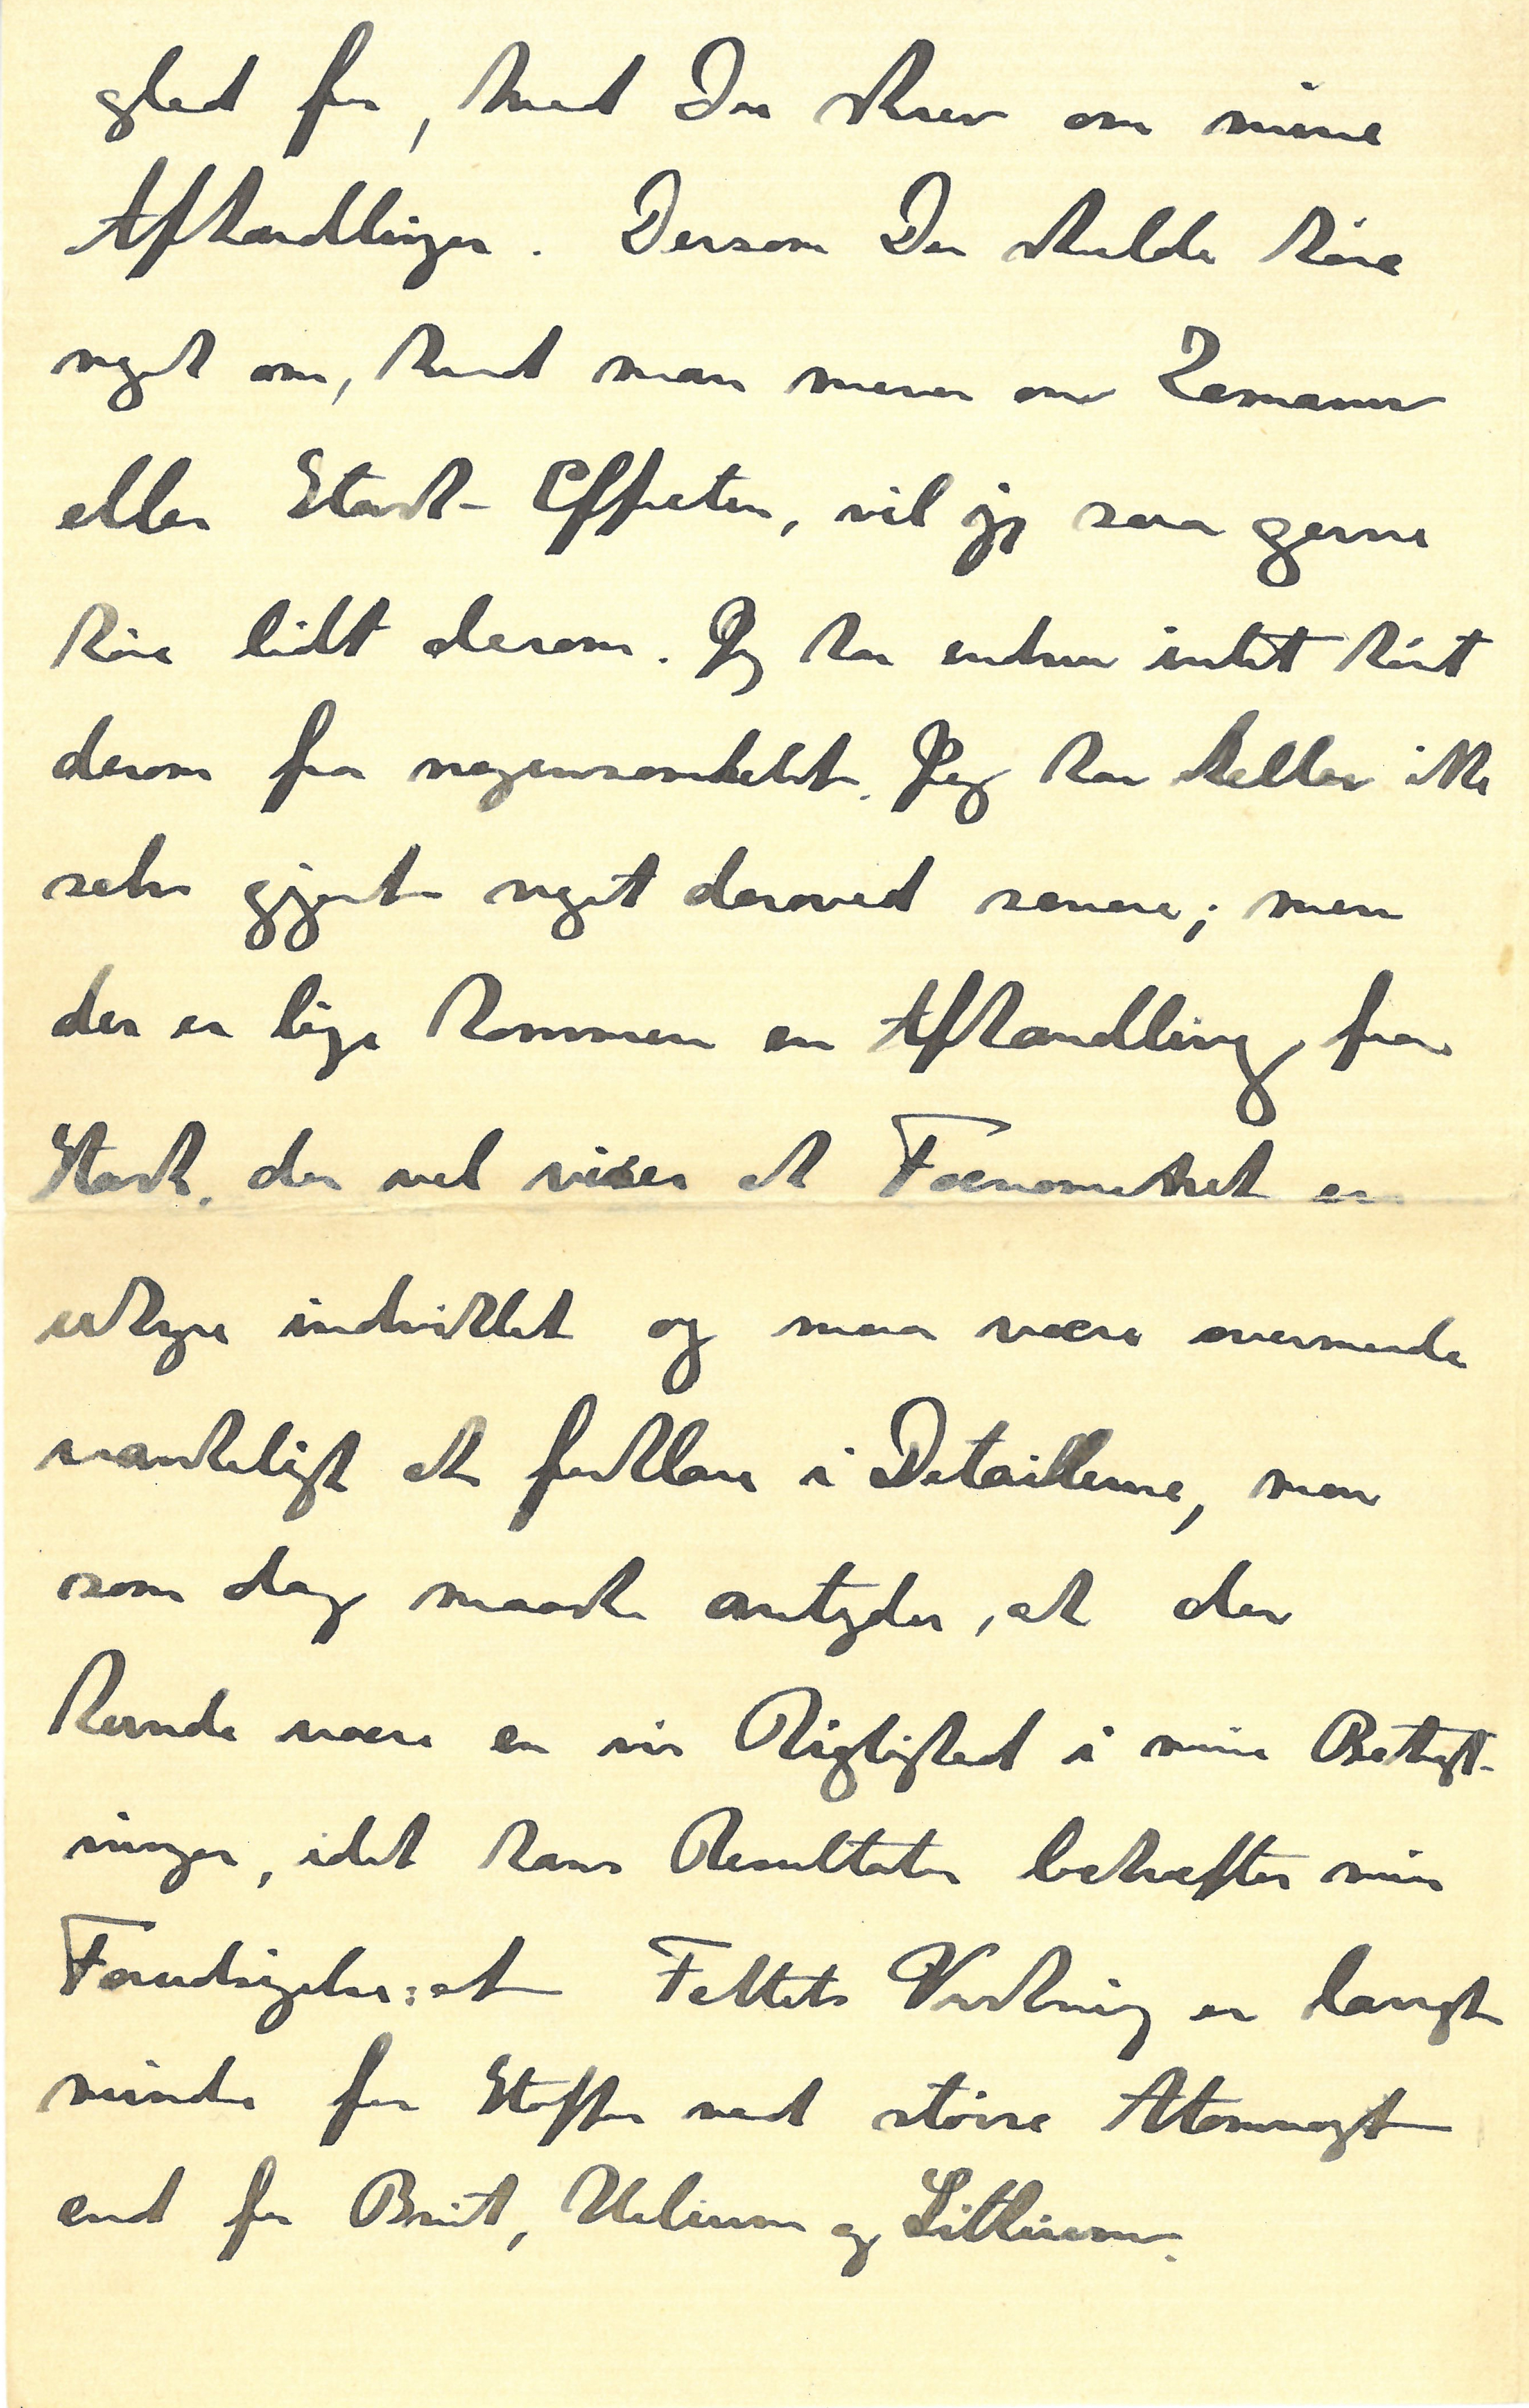 glad for, hvad Du skrev om mine
Afhandlinger. Dersom Du skulde høre
noget om, hvad man mener om Zemann
eller Stark-Effecten, vil jeg saa gerne
høre lidt derom. Jeg har endnu intet hørt
derom fra nogensomhelst. Jeg har heller ikke
selv gjort noget derved senere; men
der er lige kommen en Afhandling fra
Stark, der vel viser at Fænomenet er
uhyre indviklet og maa være overmaade
vanskeligt at forklare i Detaillerne, men
som dog maaske antyder, at der
kunde være en vis Rigtighed i mine Betragt-
ninger, idet hans Resultater bekræfter min
Forudsigelse: at Feltets Virkning er langt
mindre for Stoffer med større Atomvægt
end for Brint, Helium og Lithium.